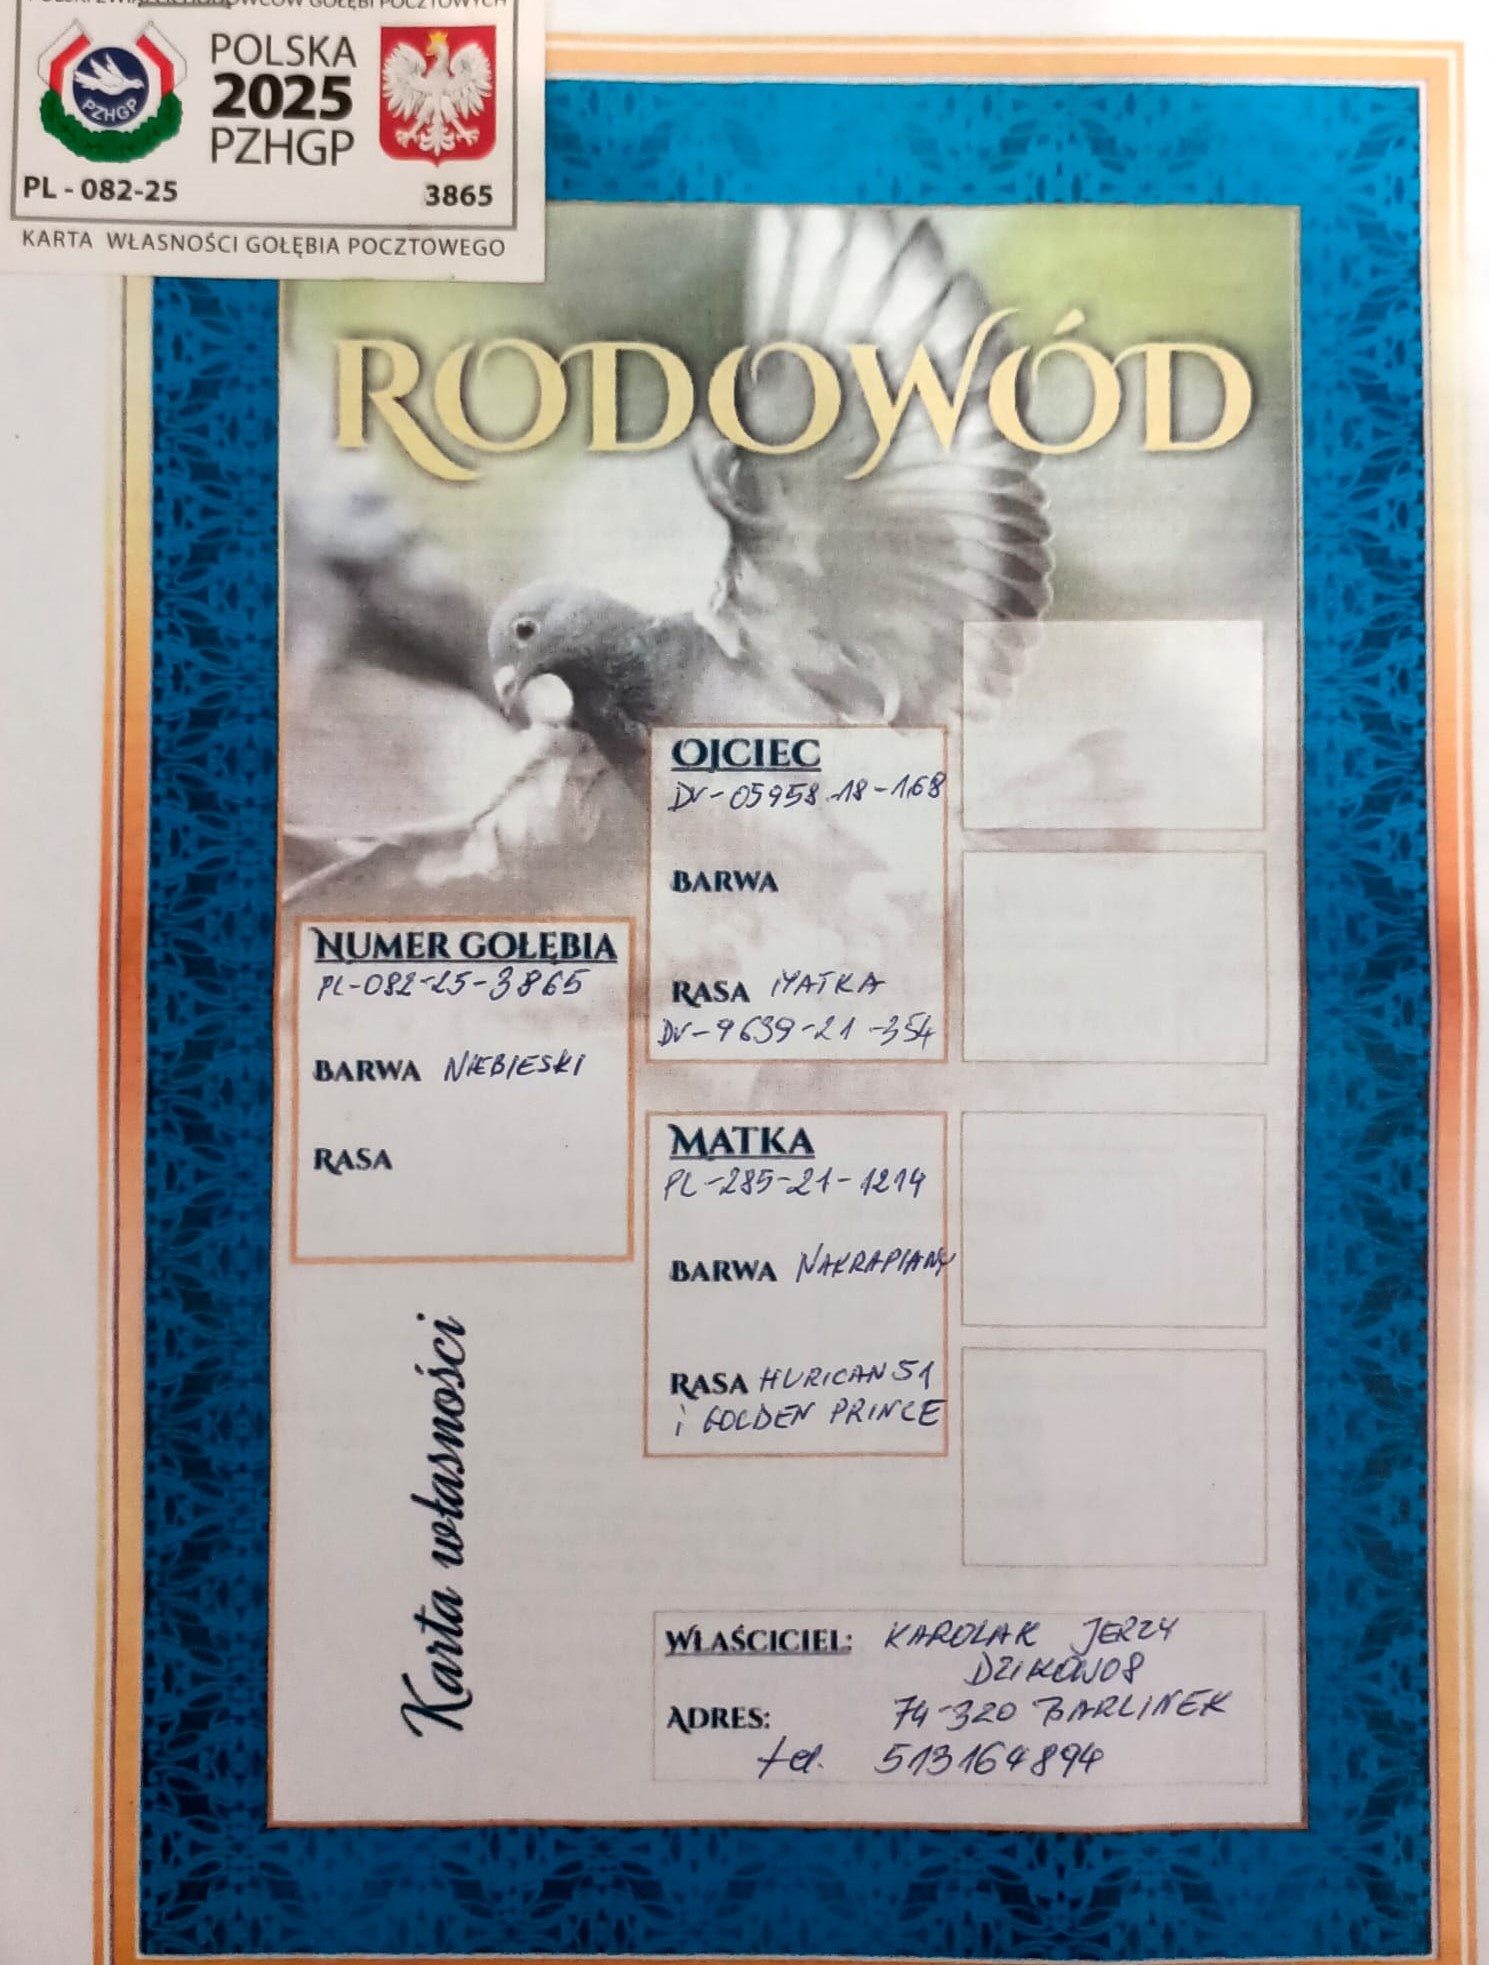 POLSKI ZWIĄZEK HODOWCÓW GOŁĘBI POCZTOWYCH
POLSKA
2025
PZHGP
PZHGP
PL - 082-25
3865
KARTA WŁASNOŚCI GOŁĘBIA POCZTOWEGO
RODOWÓD
OJCIEC
DV-05958-18-168
BARWA
RASA MATKA
DV-9639-21-354
NUMER GOŁĘBIA
PL-082-25-3865
BARWA NIEBIESKI
RASA
MATKA
PL-285-21-1214
BARWA NAKRAPIANY
RASA HURICAN 51
i GOLDEN PRINCE
Karta własności
WŁAŚCICIEL: KAROLAK JERZY
DZIKOWO 8
ADRES: 74-320 BARLINEK
tel. 513164894